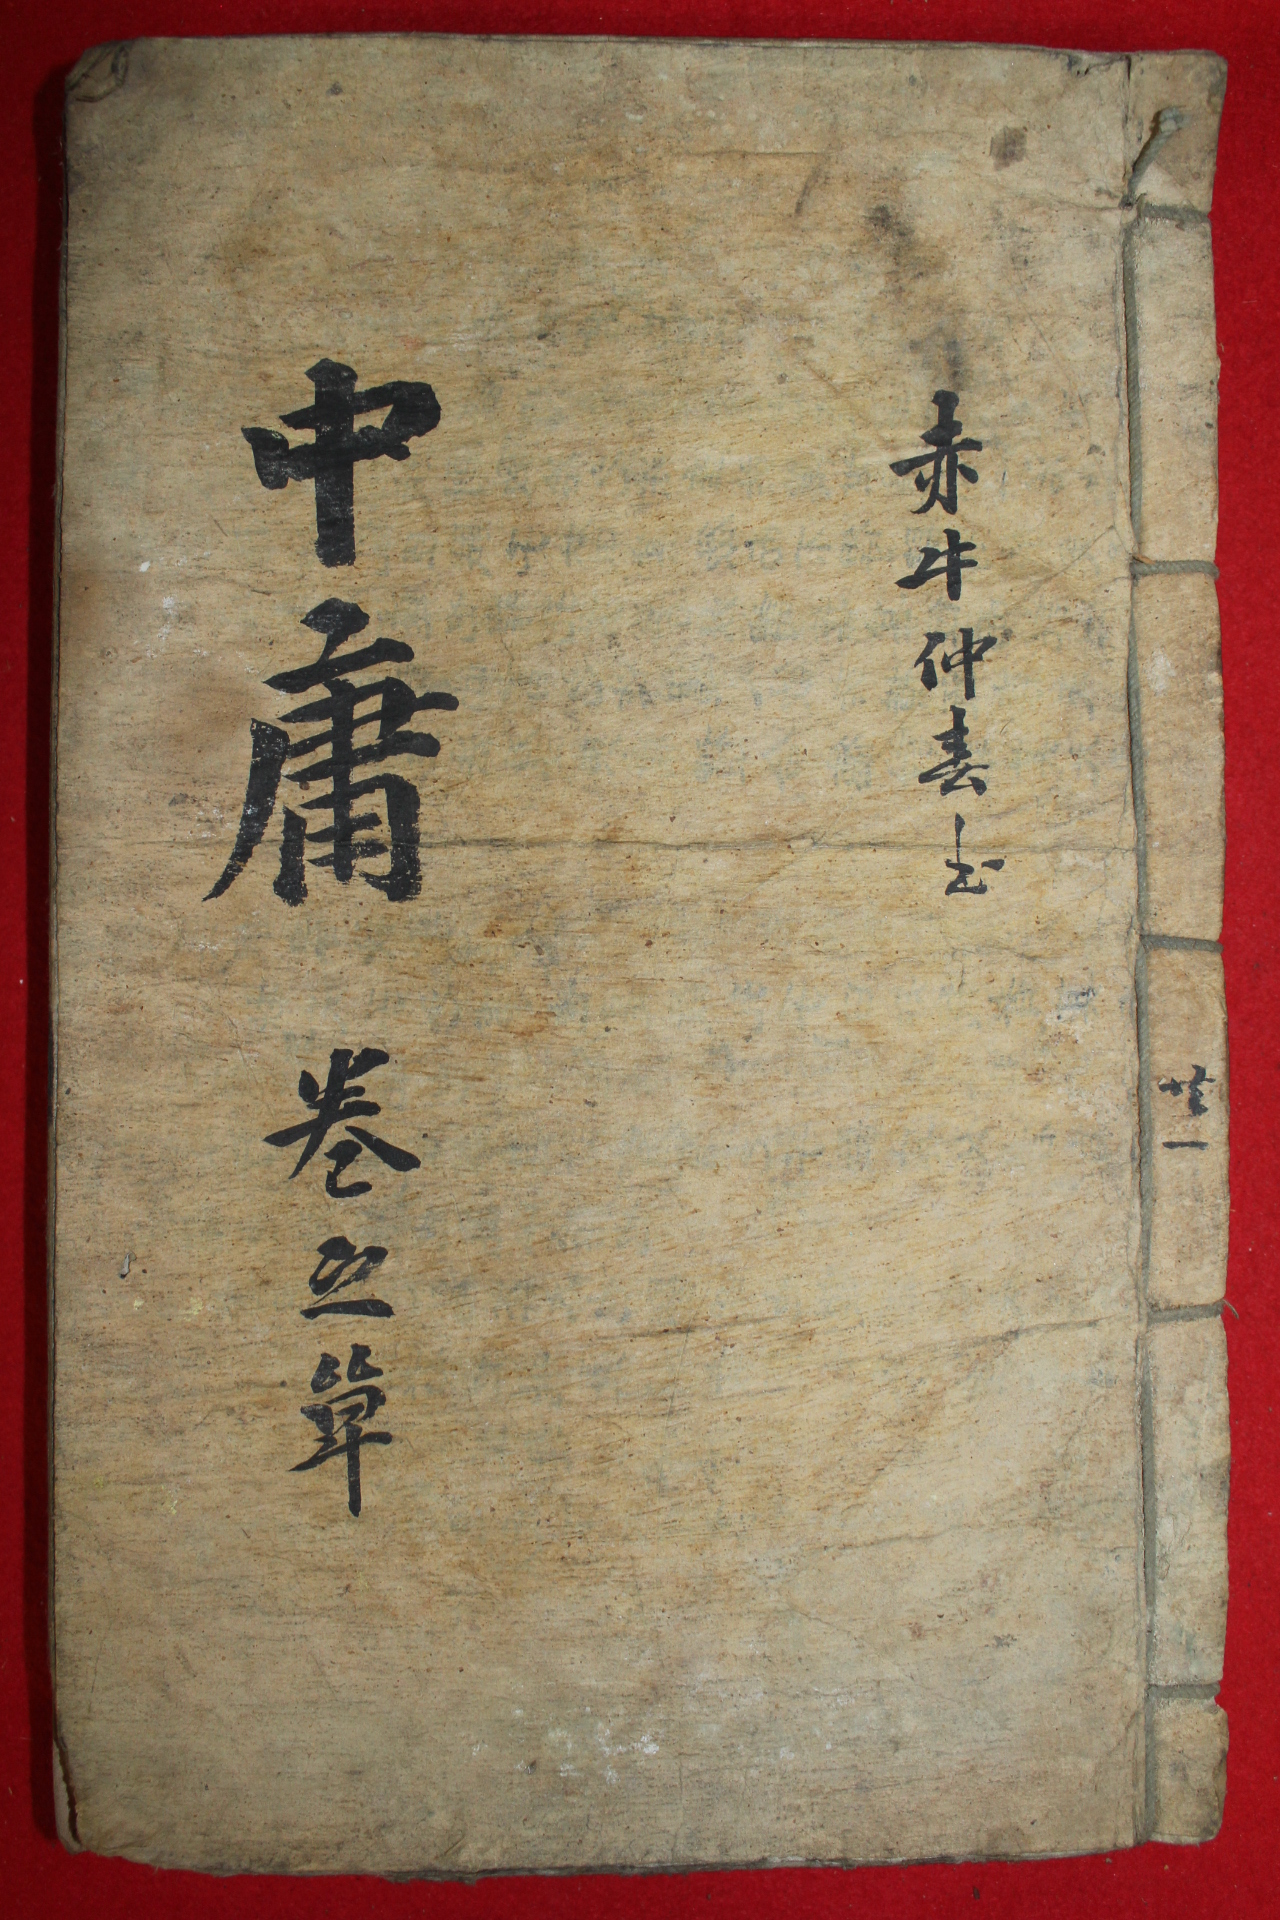 共一
赤牛仲春
中庸 卷之單